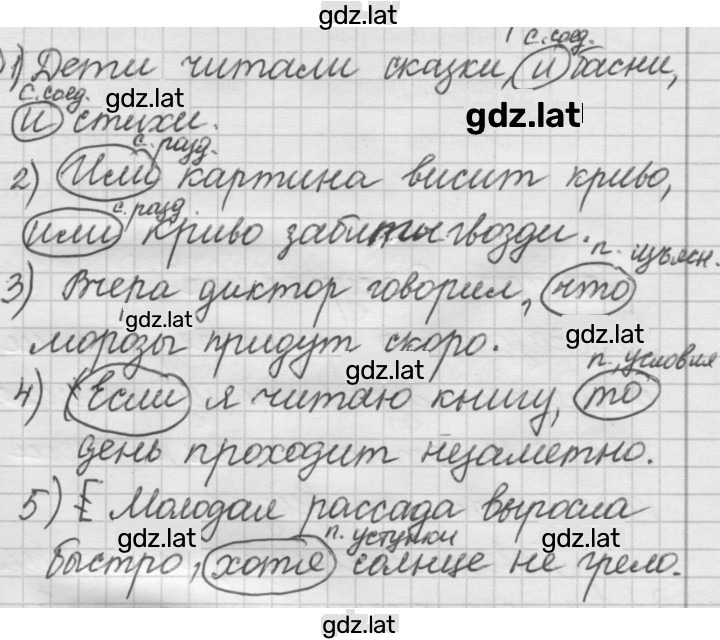 gdz.lat
с. соед.
1) Дети читали сказки, и басни,
с. соед. gdz.lat
и стихи. gdz.lat
с. разд.
2) Или картина висит криво,
с. разд.
или криво забиты гвозди.
п. изъясн.
3) Вчера диктор говорил, что
gdz.lat gdz.lat
морозы придут скоро.
gdz.lat п. условия
4) Если я читаю книгу, то
день проходит незаметно.
5) Е Молодая рассада выросла
gdz.lat п. уступки gdz.lat
быстро, хотя солнце не грело.
gdz.lat